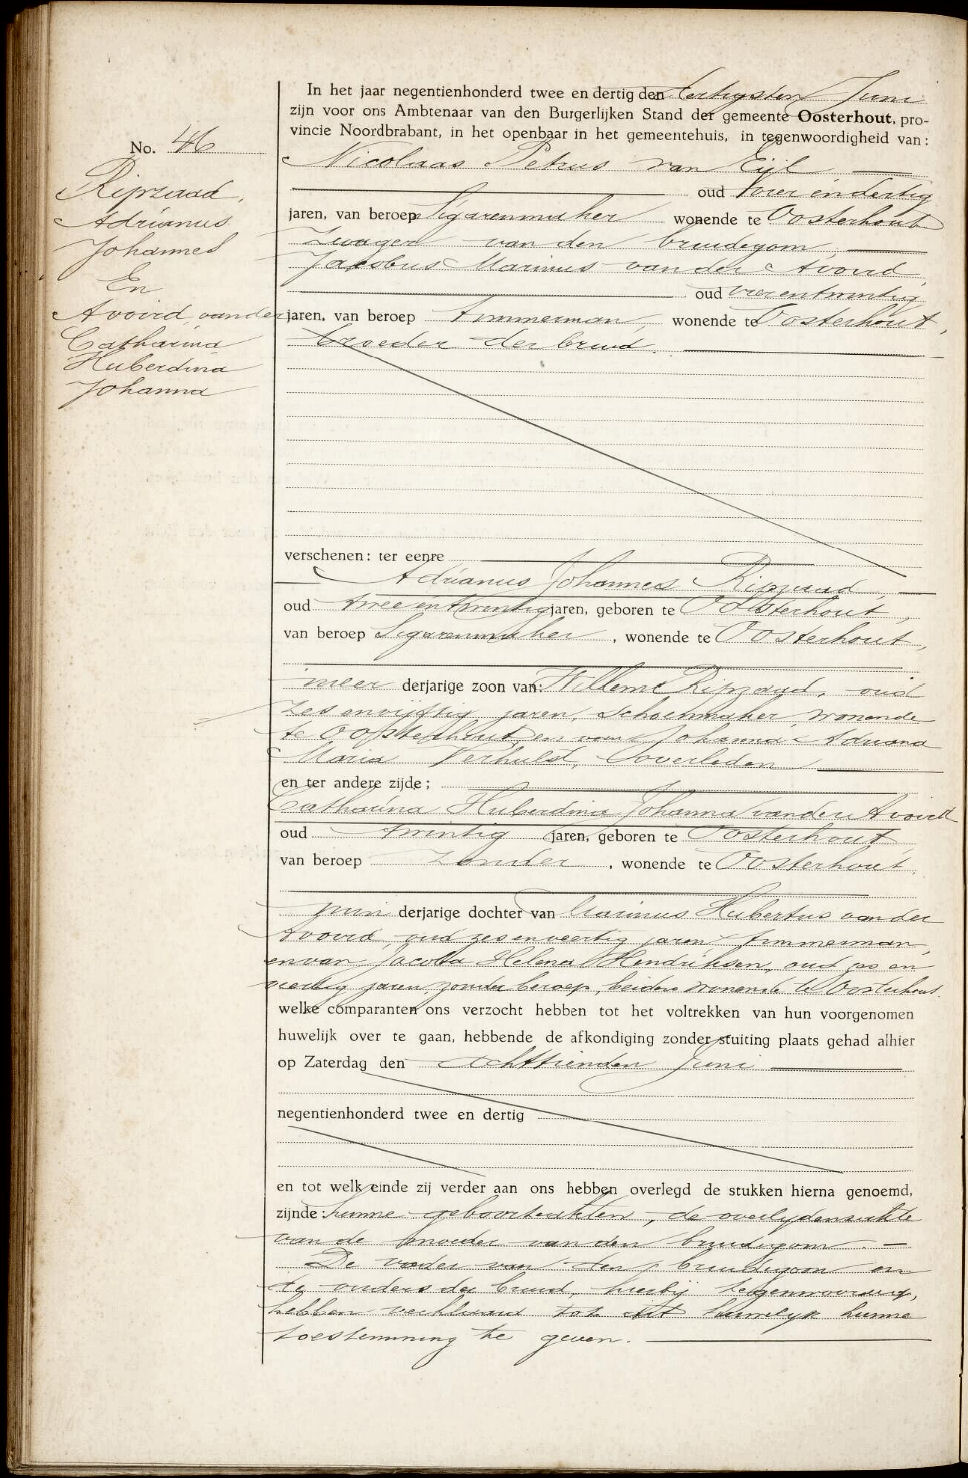 No. 46
Ripzaad,
Adrianus
Johannes
En
Avoird, vander
Catharina
Huberdina
Johanna
In het jaar negentienhonderd twee en dertig den dertigsten Juni
zijn voor ons Ambtenaar van den Burgerlijken Stand der gemeente Oosterhout, pro-
vincie Noordbrabant, in het openbaar in het gemeentehuis, in tegenwoordigheid van:
Nicolaas Petrus van Eijl
oud vier en dertig
jaren, van beroep Sigarenmaker wonende te Oosterhout
zwager van den bruidegom,
Jacobus Marinus van der Avoird,
oud vier en twintig
jaren, van beroep timmerman, wonende te Oosterhout,
broeder der bruid.
verschenen: ter eenre
Adrianus Johannes Ripzaad,
oud twee en twintig jaren, geboren te Oosterhout,
van beroep Sigarenmaker, wonende te Oosterhout,
meer derjarige zoon van: Willem Ripzaad, oud
zes en vijftig jaren, Schoenmaker, wonende
te Oosterhout, en van Johanna Adriana
Maria Verhulst, overleden
en ter andere zijde;
Catharina Huberdina Johanna vander Avoird
oud twintig jaren, geboren te Oosterhout,
van beroep zonder, wonende te Oosterhout,
min derjarige dochter van Marinus Hubertus van der
Avoird, oud zes en veertig jaren, timmerman,
en van Jacoba Helena Hendriksen, oud zes en
veertig jaren, zonder beroep, beiden wonende te Oosterhout.
welke comparanten ons verzocht hebben tot het voltrekken van hun voorgenomen
huwelijk over te gaan, hebbende de afkondiging zonder stuiting plaats gehad alhier
op Zaterdag den achttienden Juni
negentienhonderd twee en dertig
en tot welk einde zij verder aan ons hebben overlegd de stukken hierna genoemd,
zijnde: hunne geboorteakten, de overlijdensakte
van de moeder van den bruidegom.
De vader van den bruidegom en
de ouders der bruid, hierbij tegenwoordig,
hebben verklaard tot dit huwelijk hunne
toestemming te geven.